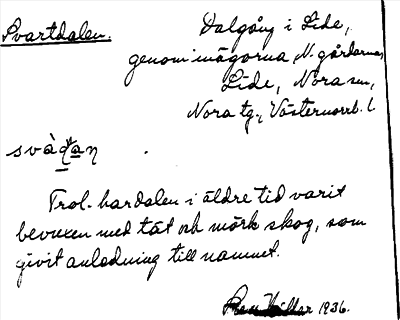 Svartdalen.
Dalgång i Lide,
genom inägorna, N. gårdarna,
Lide, Nora sn,
Nora tg., Västernorrl. l.
svàḍan
Trol. har dalen i äldre tid varit
bevuxen med tät och mörk skog, som
givit anledning till namnet.
1936.